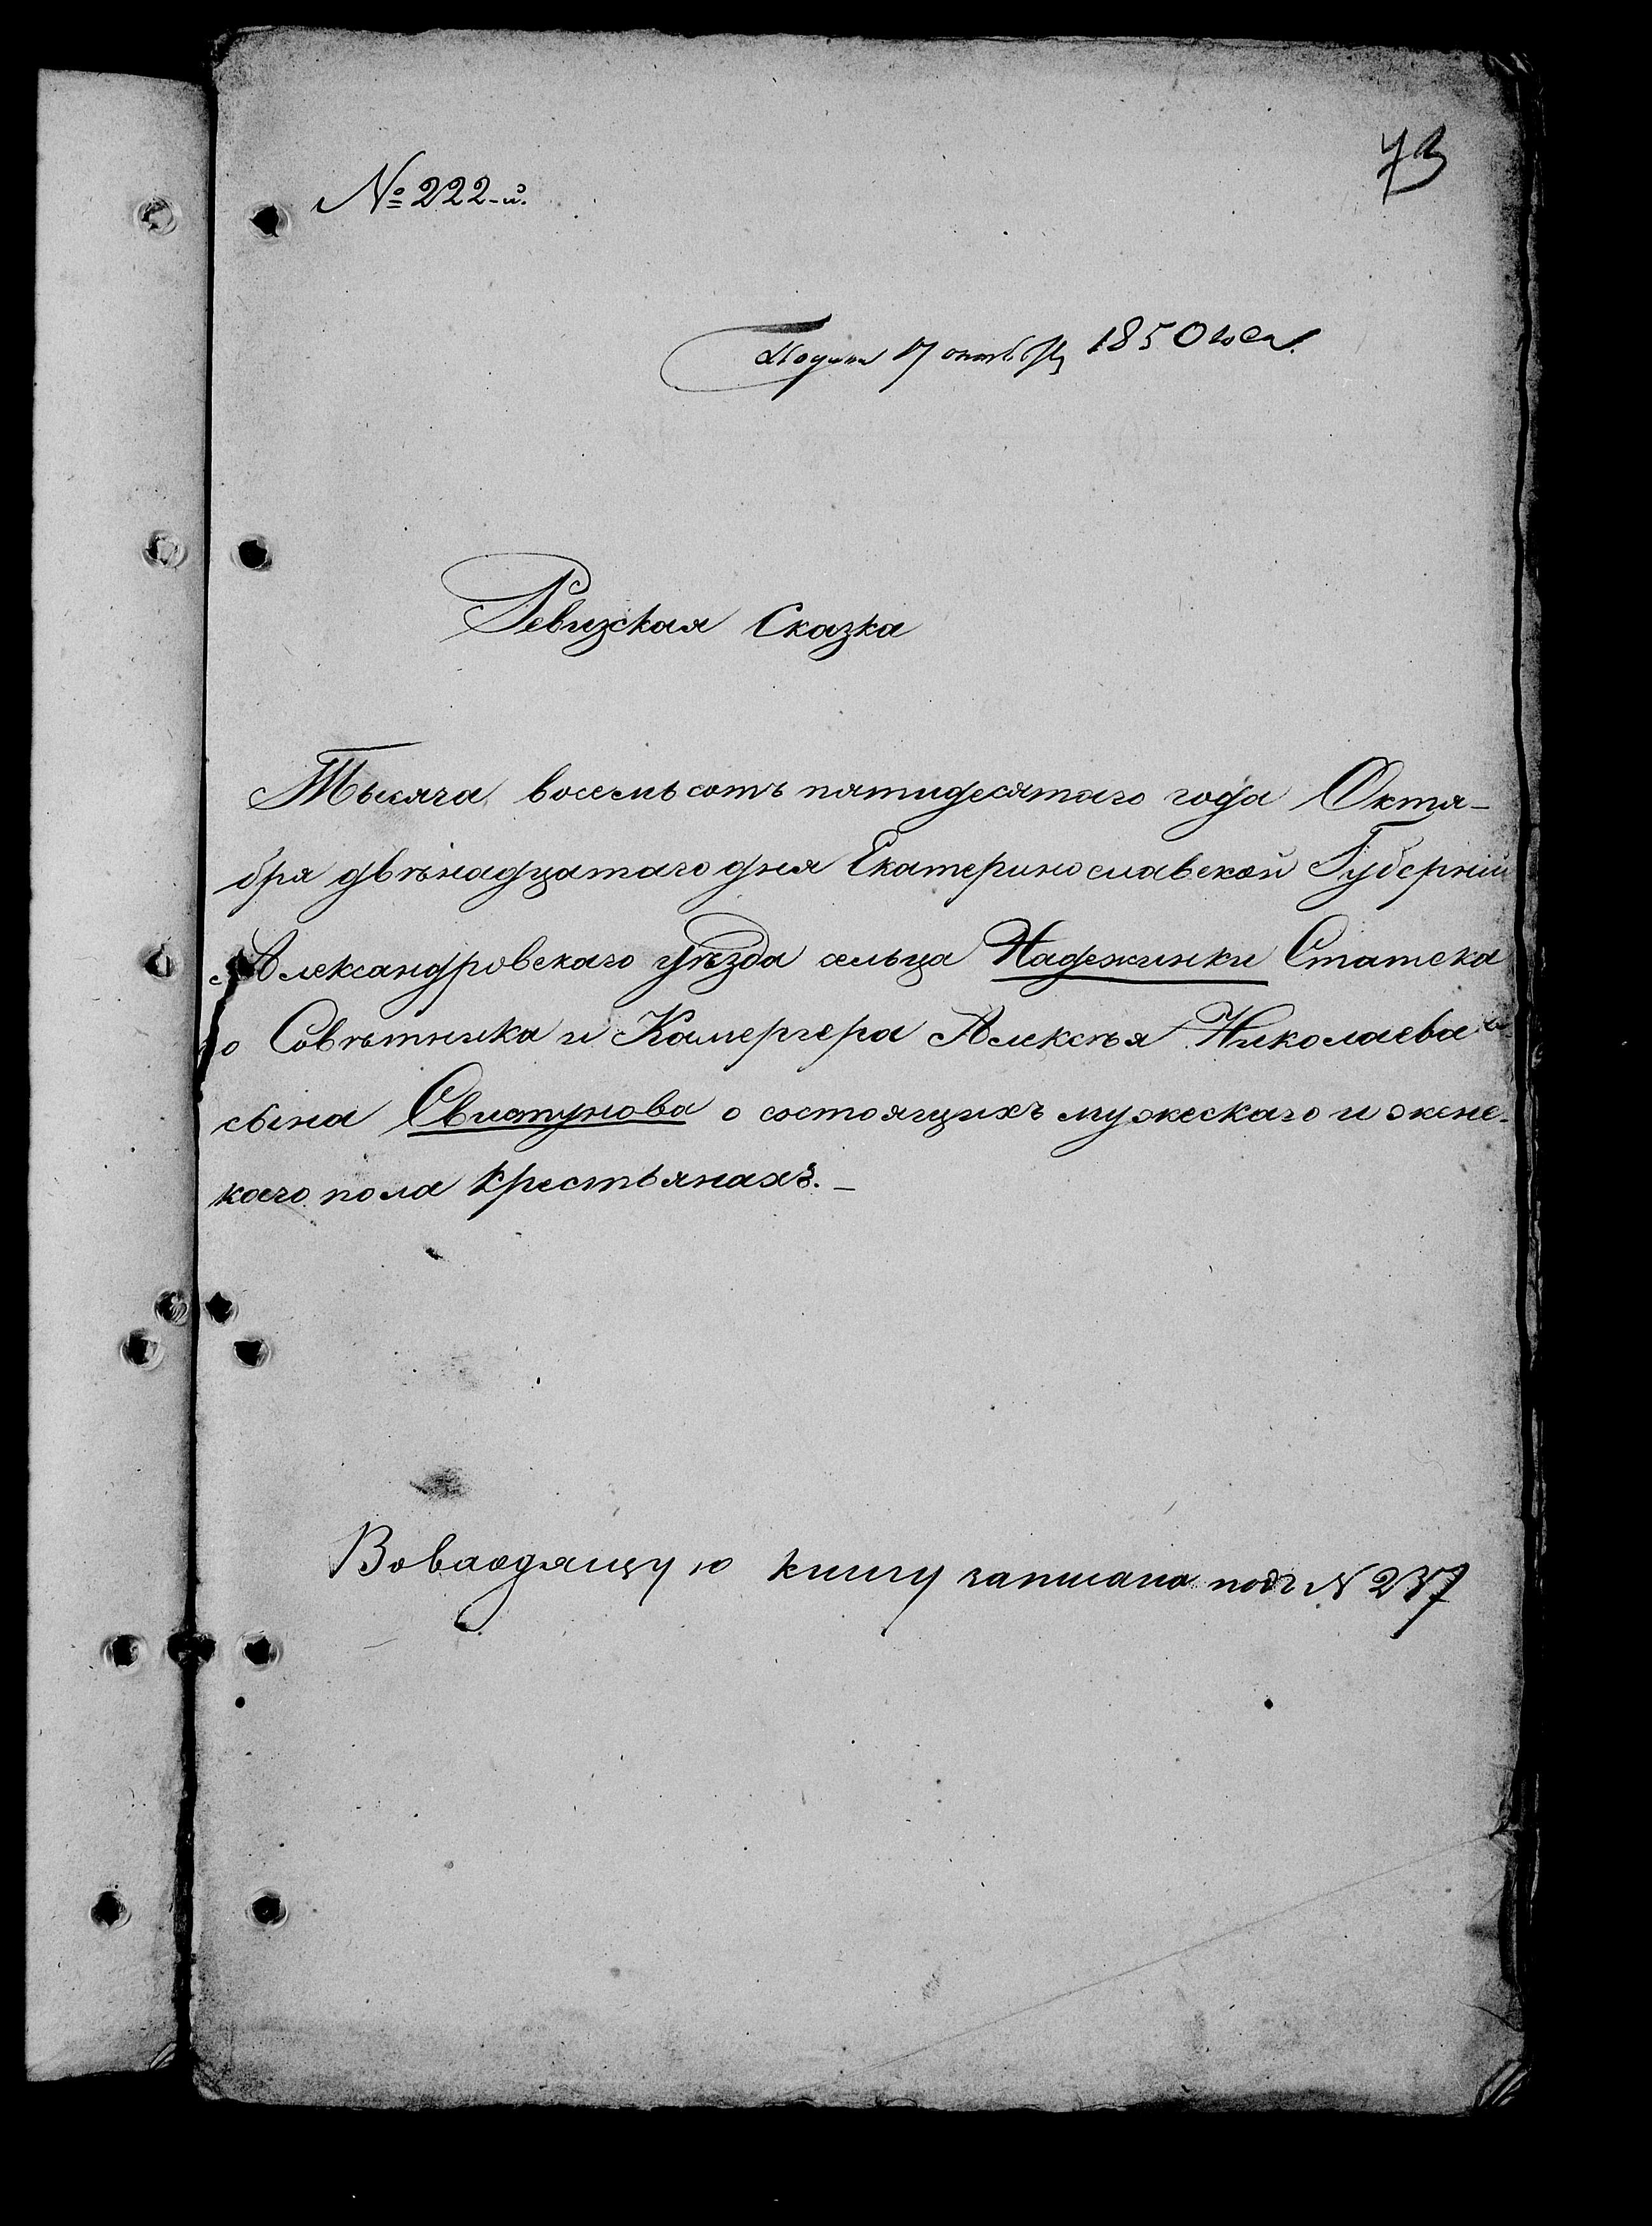 73
№ 222-й.
17 октября 1850 года.
Ревизская Сказка
Тысяча восемьсотъ пятидесятаго года Октя-
бря двѣнадцатаго дня Екатеринославской Губерніи
Александровскаго уѣзда сельца Надежинки Статска
го Совѣтника и Камергера Алексѣя Николаева
сына Свистунова о состоящихъ мужескаго и женс-
каго пола крестьянахъ.-
Вовходящую книгу записана подъ № 237